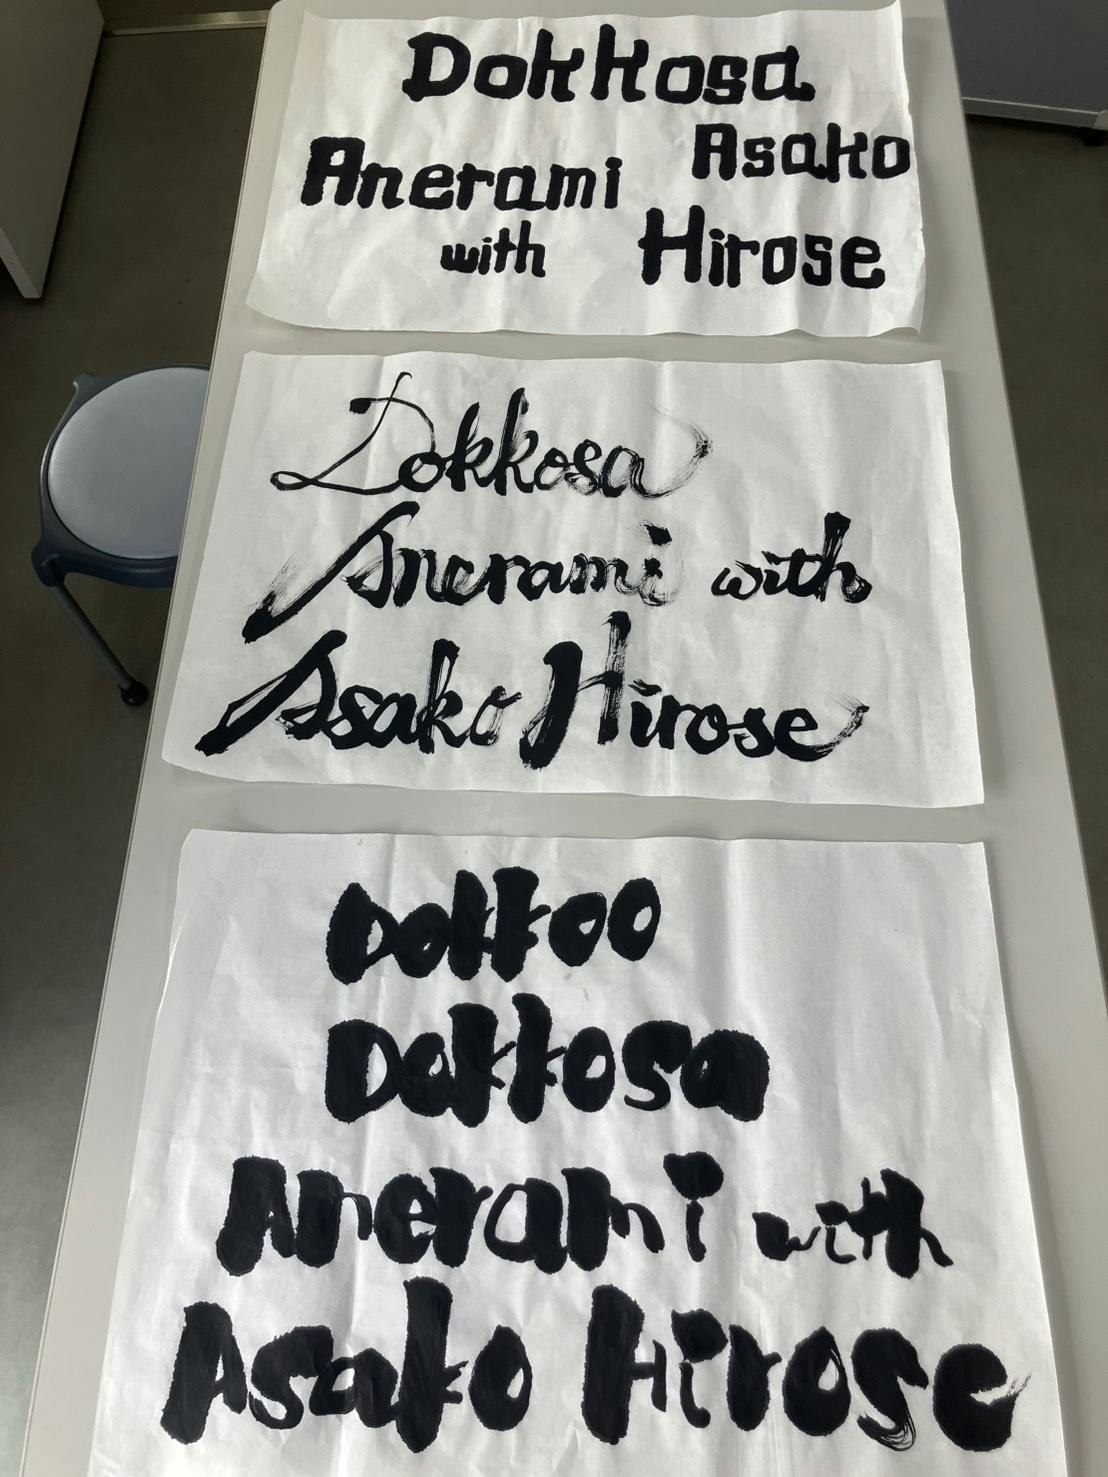 Dokkosa
Anerami Asako
with Hirose
Dokkosa
Anerami with
Asako Hirose
Dokkoo
Dokkosa
Anerami with
Asako Hirose